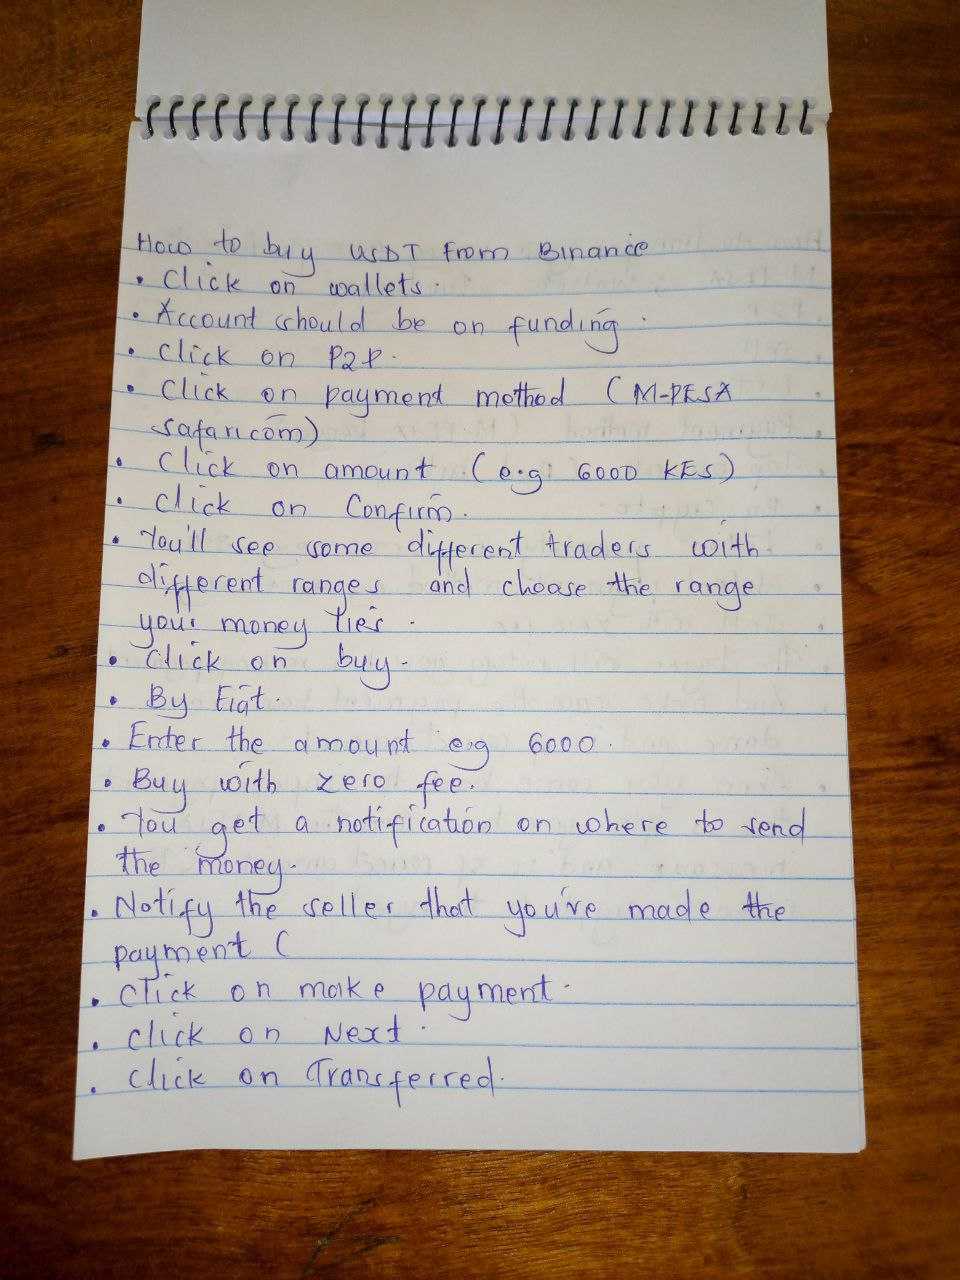 How to buy USDT from Binance
• Click on wallets.
• Account should be on funding.
• Click on P2P.
• Click on payment method (M-PESA
safaricom)
• Click on amount (e.g 6000 KES)
• Click on Confirm.
• You'll see some different traders with
different ranges and choose the range
your money lies.
• Click on buy.
• By Fiat.
• Enter the amount e.g 6000.
• Buy with zero fee.
• You get a notification on where to send
the money.
• Notify the seller that you've made the
payment (
• Click on make payment.
• Click on Next.
• Click on Transferred.